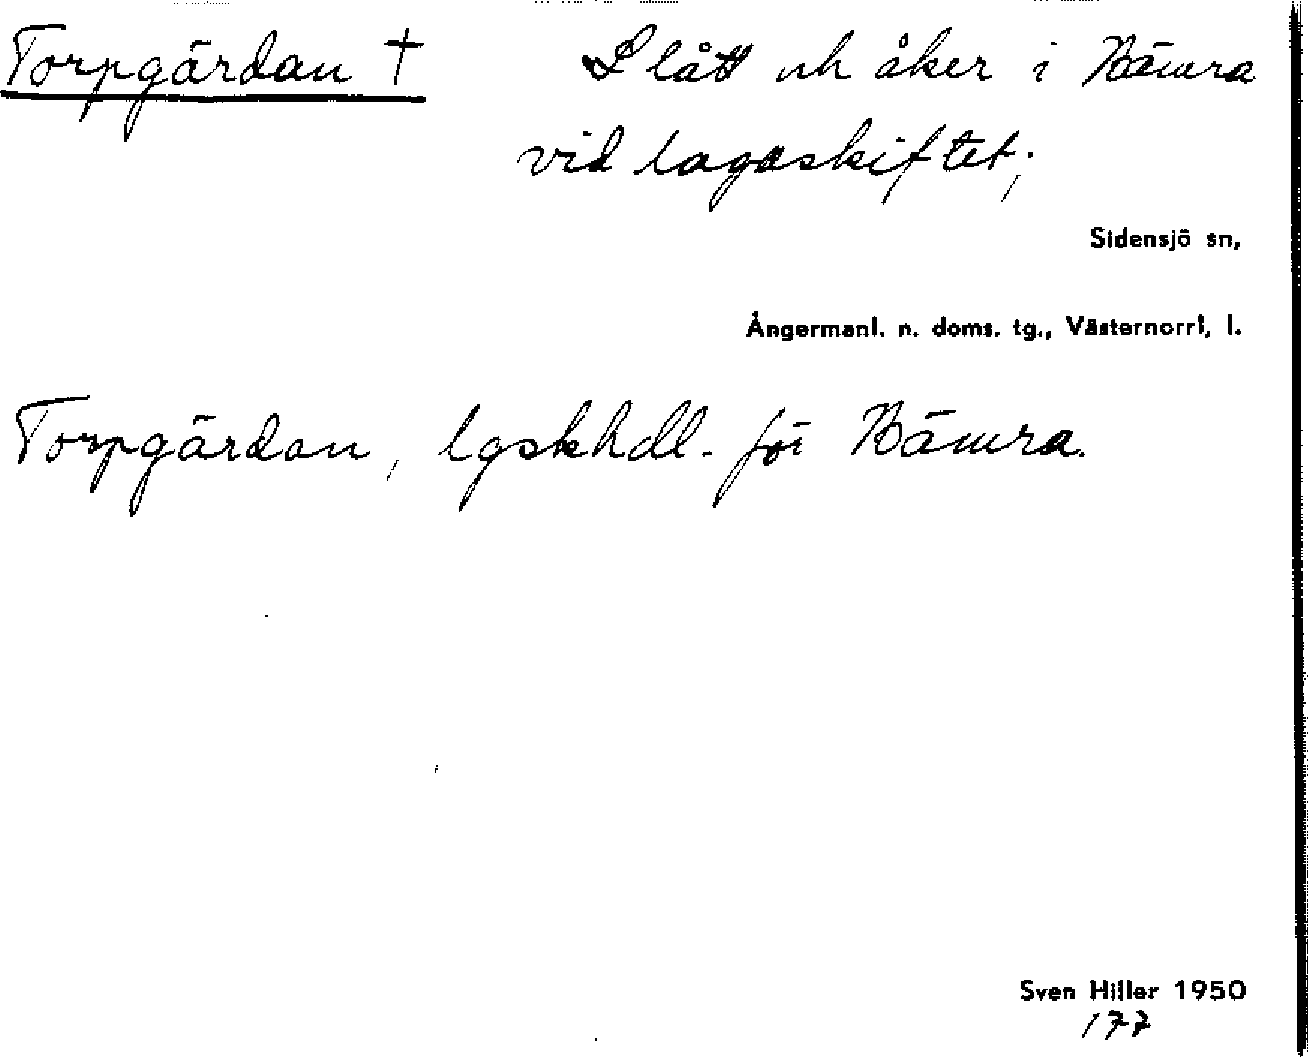 Torpgärdan †
Slått och åker i Hämra
vid lagaskiftet;
Sidensjö sn,
Ångermanl. n. doms. tg., Västernorrl. l.
Torpgärdan, lgskhdl. för Hämra.
Sven Hiller 1950
177